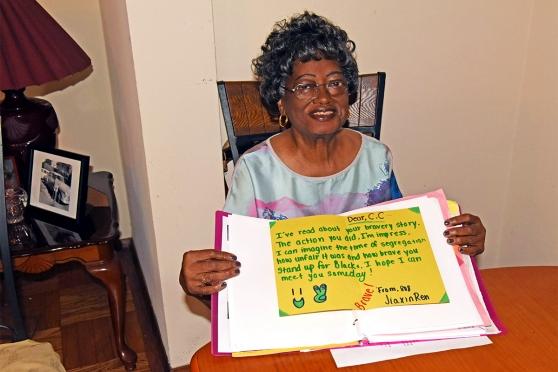 Dear, C.C
I've read about your bravery story.
The action you did, I'm impress.
I can imagine the time of segregation
how unfair it was and how brave you
stand up for Blacks. I hope I can
meet you someday!
Brave!
From, 8D8
JiaxinRen